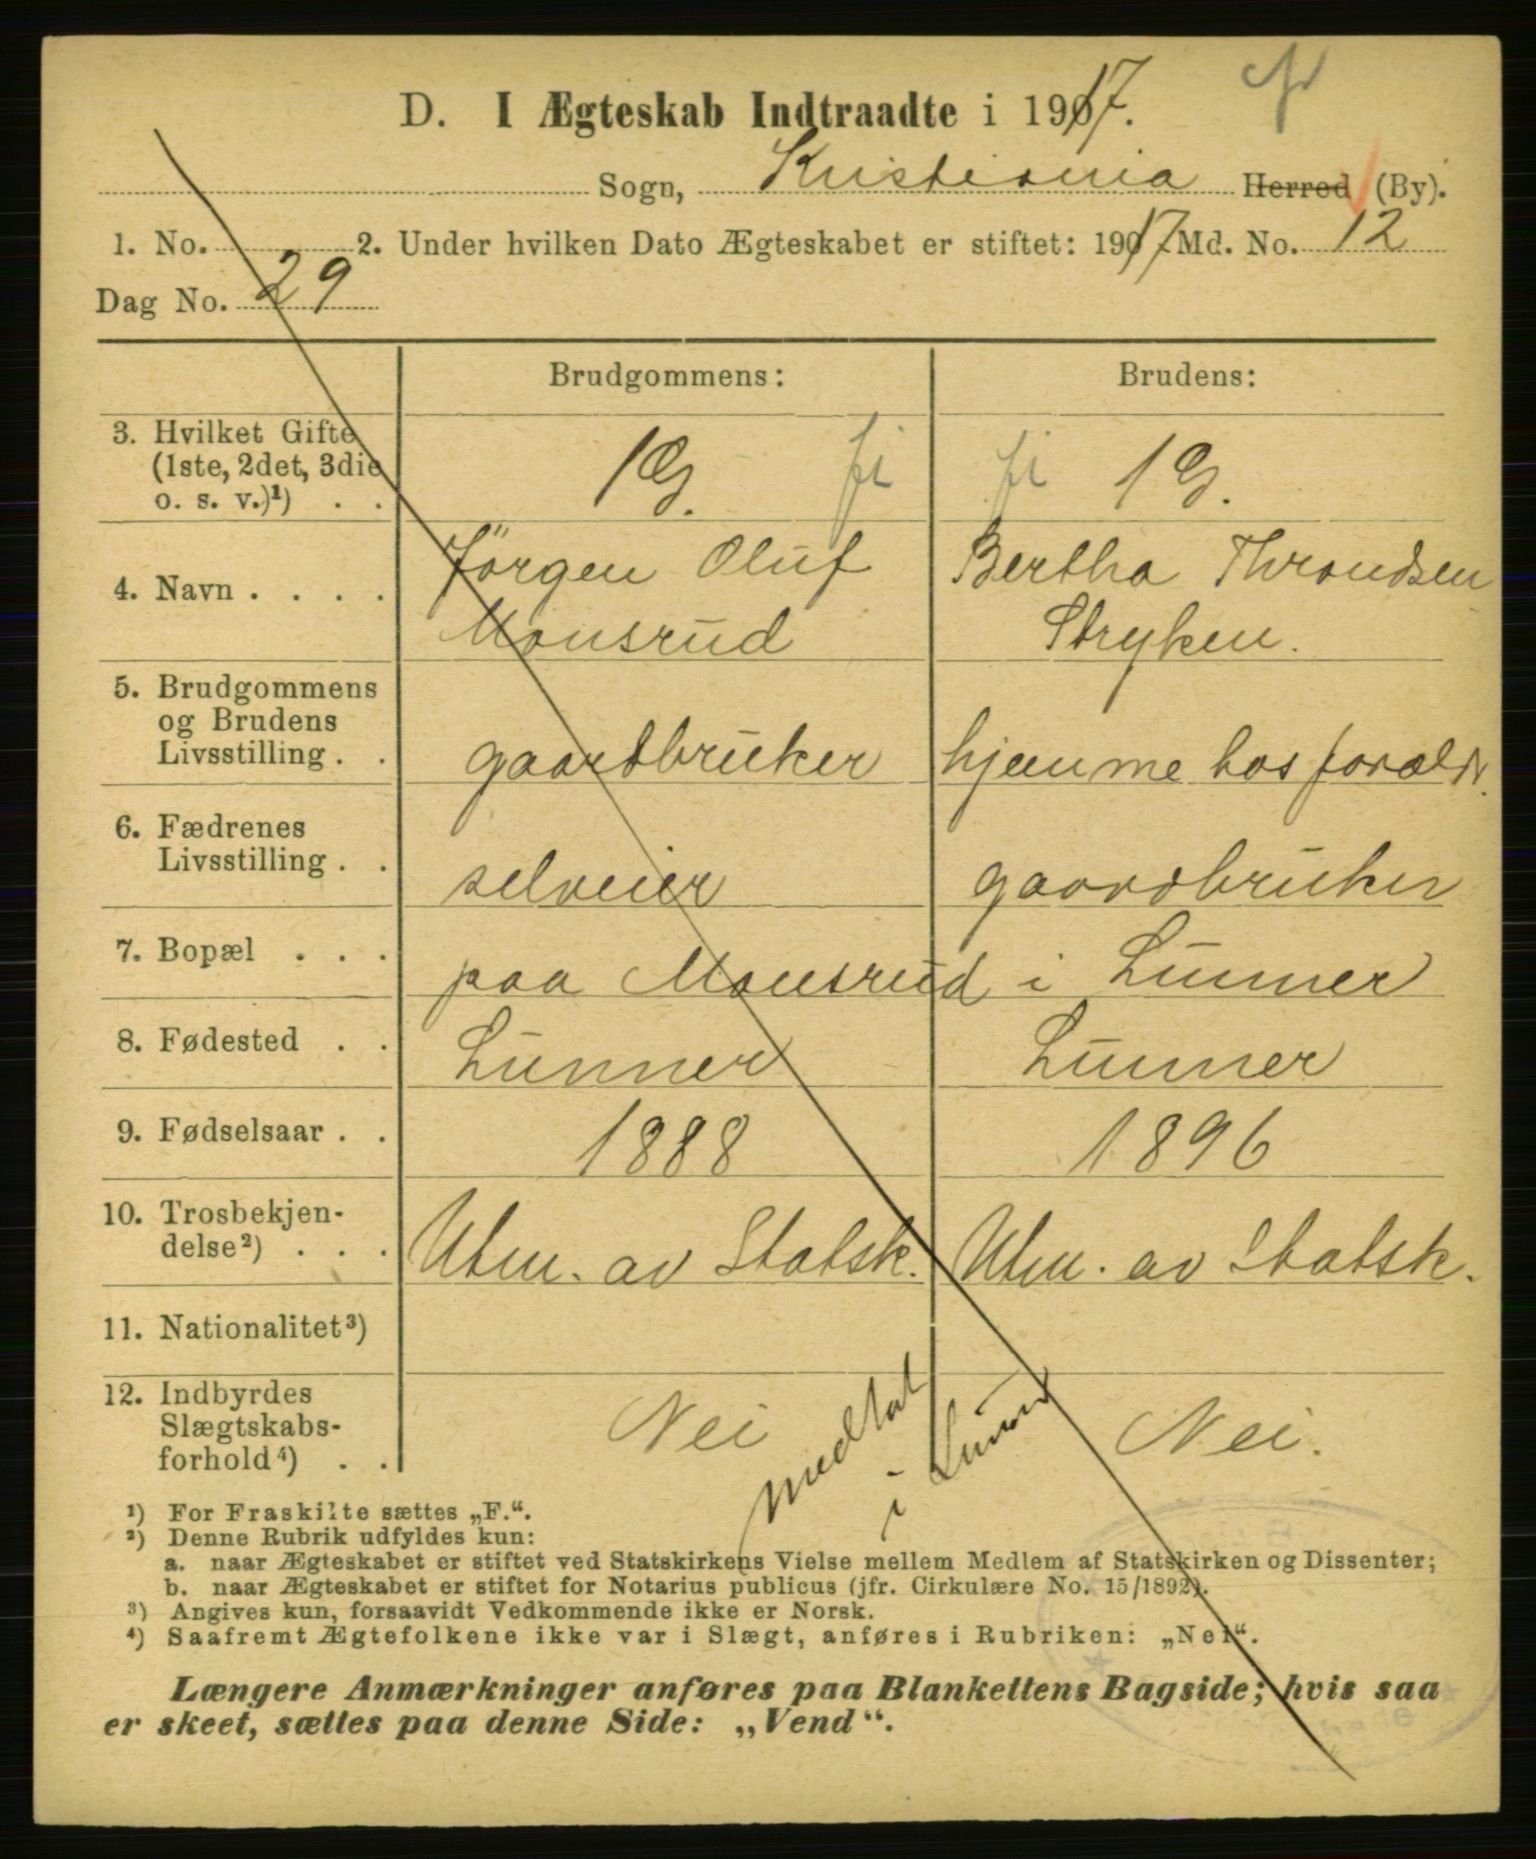 D. I Ægteskab Indtraadte i 1917.
Sogn, Kristiania Herred (By).
1. No. 2. Under hvilken Dato Ægteskabet er stiftet: 1917 Md. No. 12
Dag No. 29
Brudgommens: Brudens:
3. Hvilket Gifte
(1ste, 2det, 3die
o. s. v.)¹) . . 1 G. fi fi 1 G.
4. Navn . . . . Jörgen Oluf Bertha Throndsen
Monsrud Stryken.
5. Brudgommens
og Brudens
Livsstilling . . gaardbruker hjemme hos forældr.
6. Fædrenes
Livsstilling . . selveier gaardbruker
7. Bopæl . . . paa Monsrud i Lunner
8. Fødested . . Lunner Lunner
9. Fødselsaar . . 1888 1896
10. Trosbekjen-
delse²) . . . Utm. av Statsk. Utm. av Statsk.
11. Nationalitet³)
12. Indbyrdes
Slægtskabs-
forhold⁴) . . Nei Nei.
medtat
i Lunner
¹) For Fraskilte sættes „F.“.
²) Denne Rubrik udfyldes kun:
a. naar Ægteskabet er stiftet ved Statskirkens Vielse mellem Medlem af Statskirken og Dissenter;
b. naar Ægteskabet er stiftet for Notarius publicus (jfr. Cirkulære No. 15/1892).
³) Angives kun, forsaavidt Vedkommende ikke er Norsk.
⁴) Saafremt Ægtefolkene ikke var i Slægt, anføres i Rubriken: „Nei“.
Længere Anmærkninger anføres paa Blankettens Bagside; hvis saa
er skeet, sættes paa denne Side: „Vend“.